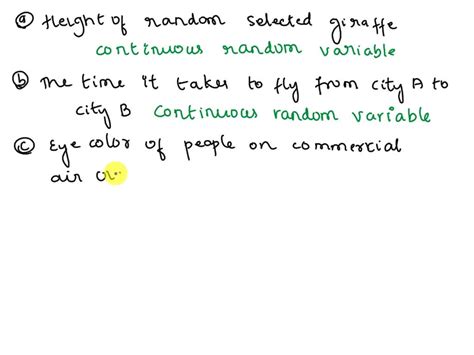 ⓐ Height of random selected giraffe
continuous random variable
ⓑ The time it takes to fly from city A to
city B continuous random variable
ⓒ Eye color of people on commercial
air